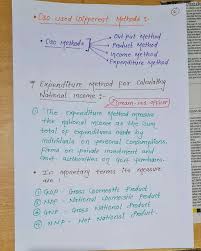 • CSO used Different Methods :-
• CSO Methods
• Output Method
• Product Method
• Income Method
• Expenditure Method
Expenditure Method for Calculating
National Income :-
① "The Expenditure Method measure
the national income as the sum
total of expenditures made by
individuals on personal consumption,
firms on private investment and
Govt. authorities on Govt. purchases.
• In monetary terms its measure
are :-
① GDP - Gross Domestic Product
② NDP - Net National Domestic Product
③ GNP - Gross National Product
④ NNP - Net National Product